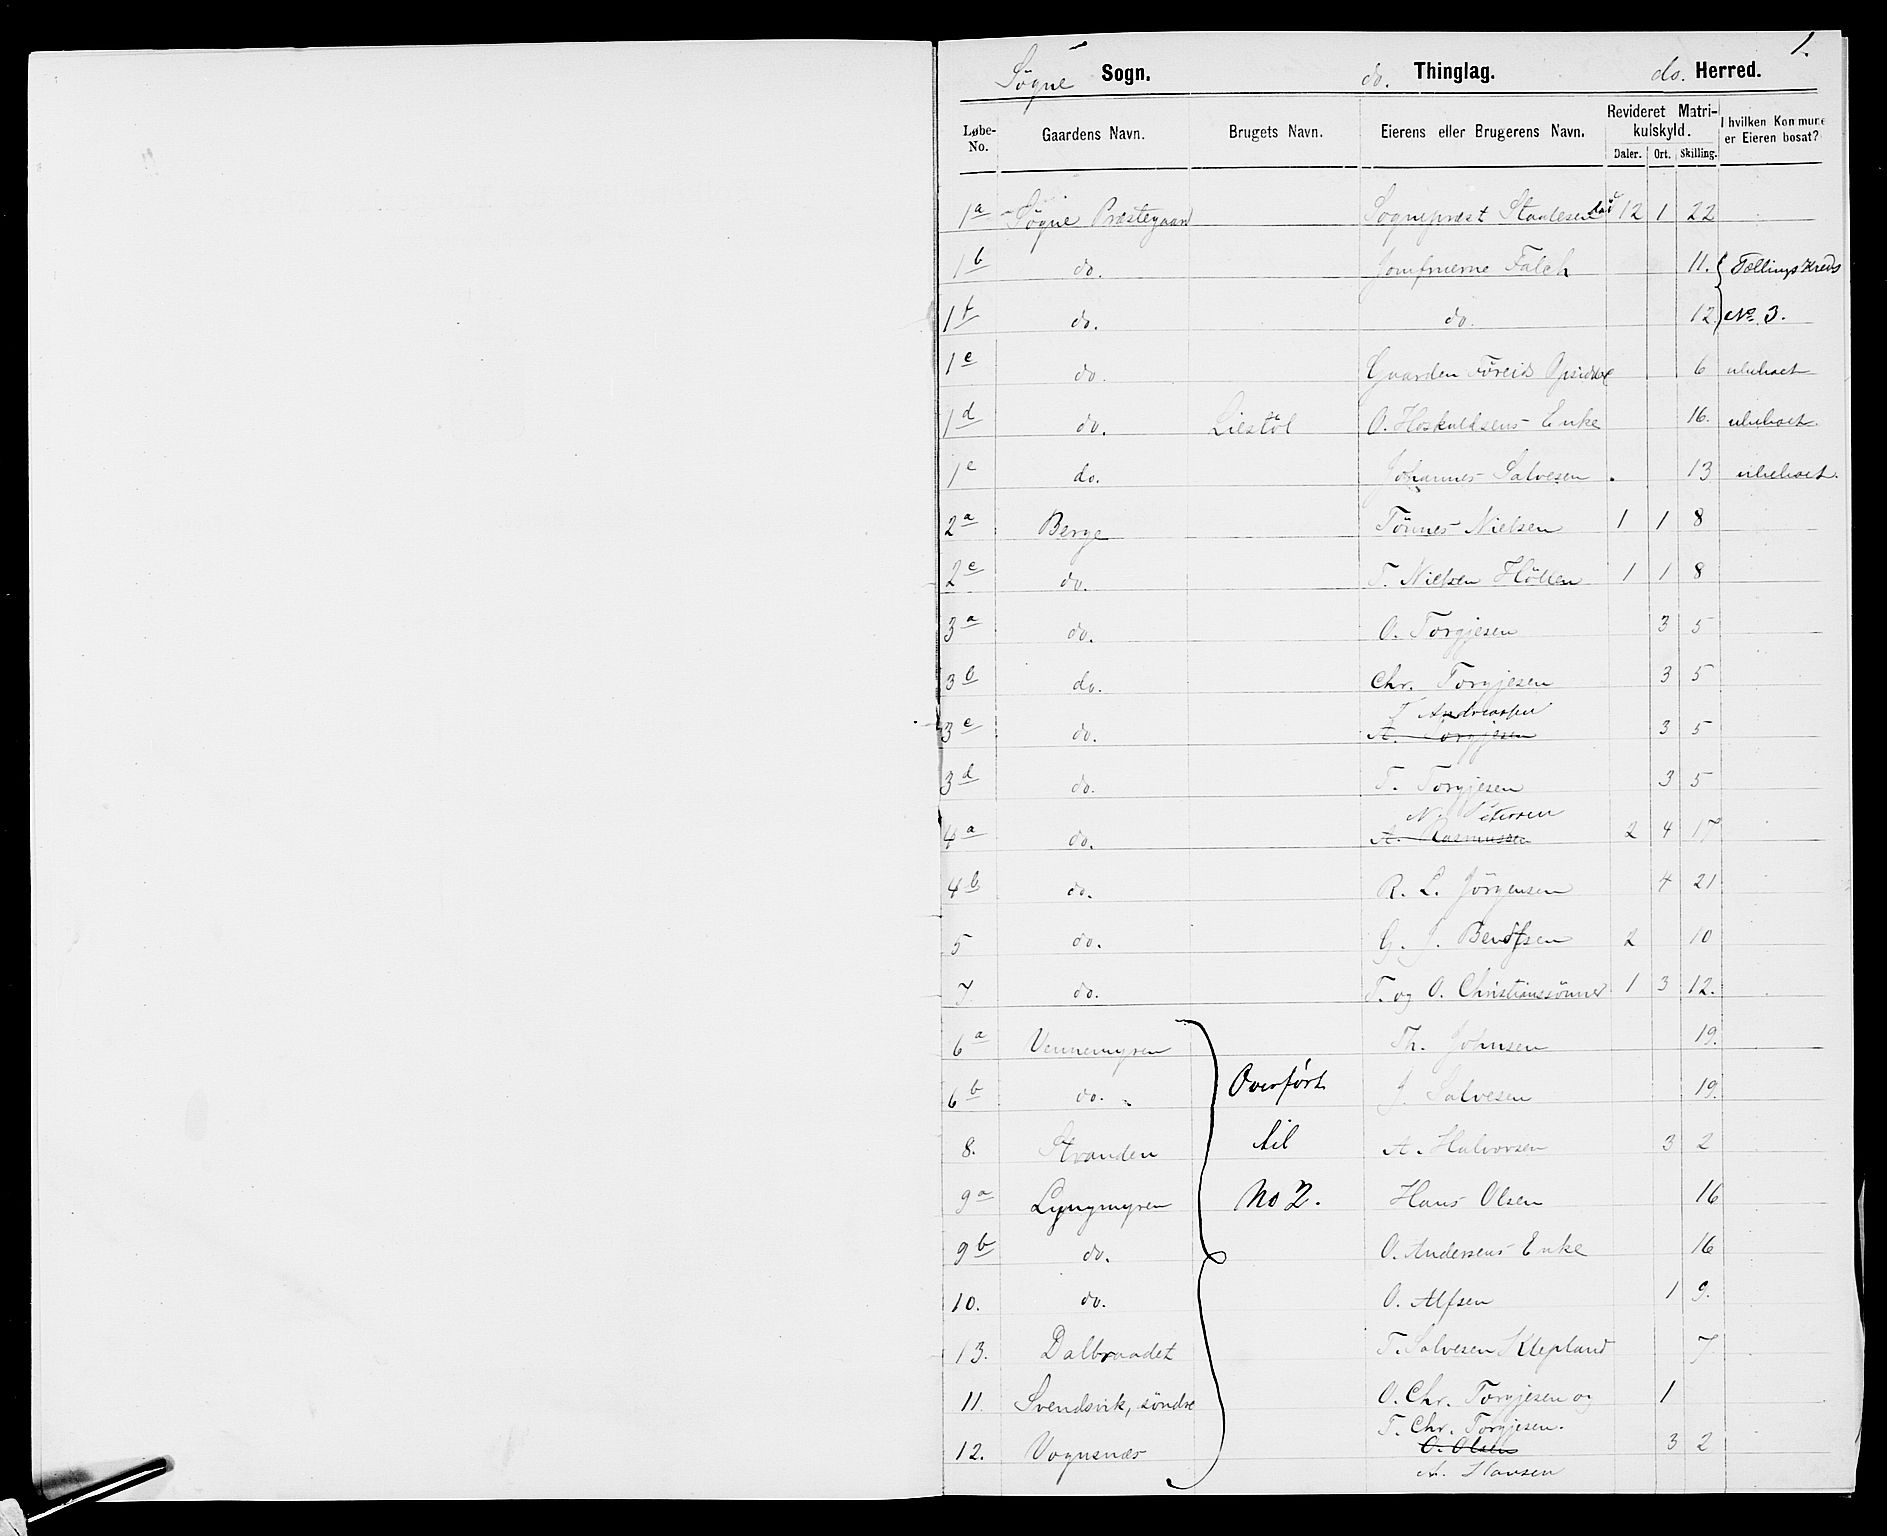 1.
Søgne Sogn. do. Thinglag. do. Herred.
Løbe-No. Gaardens Navn. Brugets Navn. Eierens eller Brugerens Navn. Revideret Matrikulskyld. Daler. Ort. Skilling. I hvilken Kommune er Eieren bosat?
1a Søgne Præstegaard Sognepræst Staalesen 12 1 22
1b do. Jomfruerne Falch 11. Tællingskreds
1f do. do. 12 No. 3.
1c do. Gaarden Føreids Opsiddere 6 ubeboet
1d do. Liestöl O. Hoskuldsens Enke 16. ubeboet.
1e do. Johannes Salvesen 13 ubeboet.
2a Berge Tönnes Nielsen 1 1 8
2c do. T. Nielsen Höllen 1 1 8
3a do. O. Torgjesen 3 5
3b do. Chr. Torgjesen 3 5
T Andreassen
3c do. A. Torgjesen 3 5
3d do. T. Torgjesen 3 5
N. Petersen
4a do. A. Rasmussen 2 4 17
4b do. R. L. Jörgensen 4 21
5 do. G. J. Bendtsen 2 10
7 do. T. og O. Christianssönner 1 3 12.
6a Vennemyren Th. Johnsen 19.
6b do. Overført J. Salvesen 19.
8. Stranden til A. Halvorsen 3 2
9a Lyngmyren No 2. Hans Olsen 16
9b do. O. Andersens Enke 16
10. do. O. Alfsen 1 9.
13. Dalbraadet T. Salvesen Klepland 7
11. Svendsvik, söndre O. Chr. Torgjesen og 1
T. Chr. Torgjesen.
12. Vognsnæs O. Olsen 3 2
A. Hansen